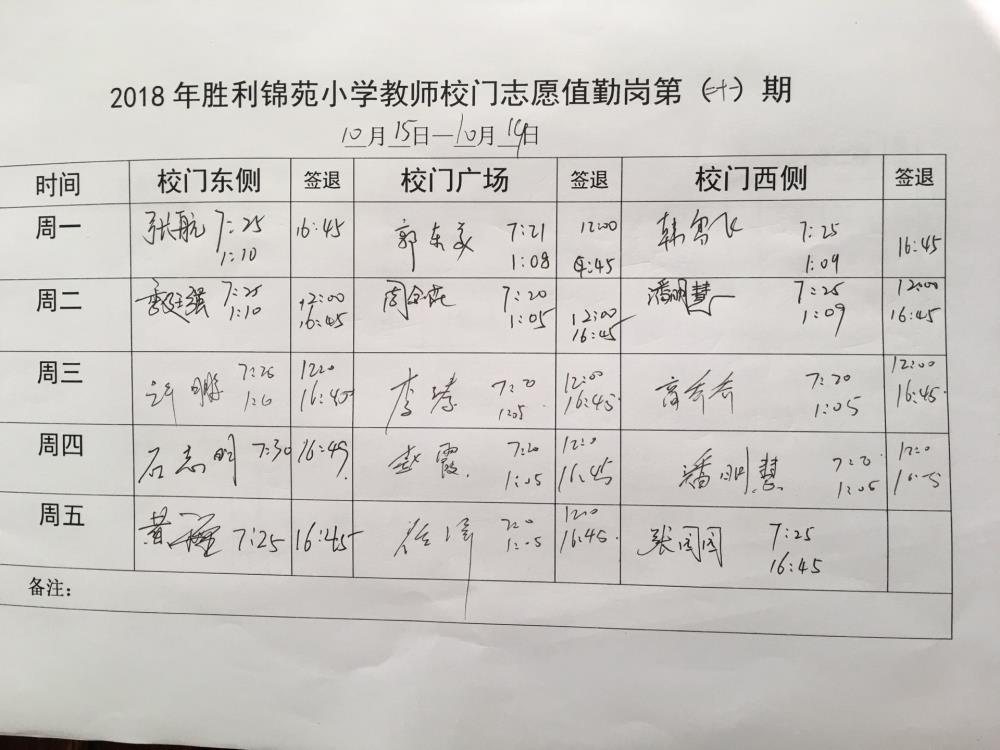 2018年胜利锦苑小学教师校门志愿值勤岗第（三十）期
10月15日—10月19日
时间 校门东侧 签退 校门广场 签退 校门西侧 签退
周一 张航 7:25 16:45 郭东 7:21 12:00 韩 7:25 16:45
1:10 1:08 4:45 1:09
周二 强 7:25 12:00 周 7:20 12:00 潘明慧 7:25 12:00
1:10 16:45 1:05 16:45 1:09 16:45
周三 许鹏 7:20 16:45 李 7:20 12:00 高秀香 7:20 12:00
16:45 1:05 1:05 16:45
周四 石志明 7:30 16:45 赵霞 7:20 潘明慧
1:05 16:45 1:05
周五 黄 7:25 16:45 1:05 16:45 张园园 7:25
16:45
备注：